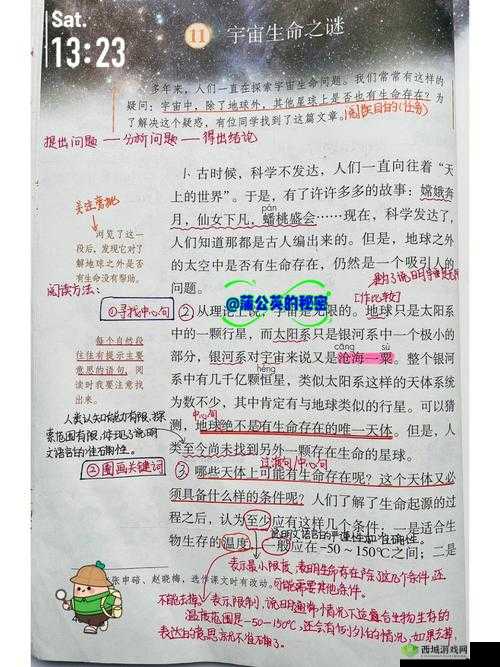 Sat.
13:23
11 宇宙生命之谜
多年来，人们一直在探索宇宙生命问题。我们常常有这样的
疑问：宇宙中，除了地球外，其他星球上是否也有生命存在？为
了解决这个疑惑，有位同学找到了这篇文章。
阅读目的(任务)
提出问题——分析问题——得出结论
关注旁批
浏览了这一
段后，发现它对了
解地球之外是否
有生命没有帮助。
1. 古时候，科学不发达，人们一直向往着“天
上的世界”。于是，有了许许多多的故事：嫦娥奔
pán
月，仙女下凡，蟠桃盛会……现在，科学发达了，
人们知道那都是古人编出来的。但是，地球之外
的太空中是否有生命存在，仍然是一个吸引人的
问题。
@蒲公英的秘密
[作比较]
阅读方法：
①寻找中心句
每个自然段
往往有提示主要
意思的语句，阅
读时我要注意找
出来。
② 从理论上说，宇宙是无限的。地球只是太阳系
中的一颗行星，而太阳系只是银河系中一个极小的
cāng sù
部分，银河系对宇宙来说又是沧海一粟。整个银河
héng
系中有几千亿颗恒星，类似太阳系这样的天体系统
为数不少，其中肯定有与地球类似的行星。可以猜
中心句
测，地球绝不是有生命存在的唯一天体。但是，人
类至今尚未找到另外一颗有生命存在的星球。
人类认知能力有限，探
索范围有限，体现了说明
文语言的准确性。
②圈画关键词
过渡句/中心句
③ 哪些天体上可能有生命存在呢？这个天体又必
须具备什么样的条件呢？人们了解了生命起源的过
程之后，认为至少应有这样几个条件：一是适合生
物生存的温度，一般应在-50~150℃之间；二是
张申碚、赵晓梅，选作课文时有改动。
表示最小限度，说明生命存在除了这几个条件，还
可能需要其他条件。
不能去掉，表示限制，说明通常情况下适合生物生存的
温度范围是-50~150℃，还会有例外的情况，如果去掉，
表达的意思就不准确了。
西城游戏网